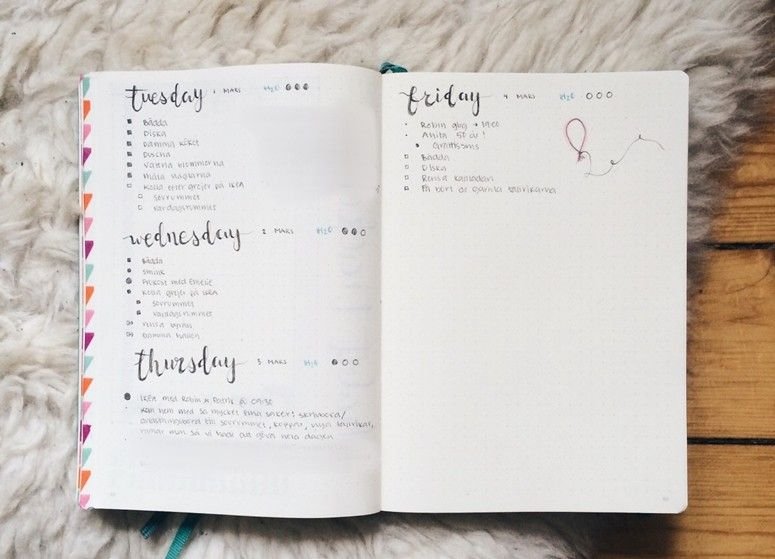 tuesday 1 MARS H2O
Bädda
Diska
Damma köket
Duscha
Vattna blommorna
Måla naglarna
Kolla efter grejer på IKEA
Sovrummet
Vardagsrummet
wednesday 2 MARS H2O
Bädda
Smink
Frukost med Emelie
Kolla grejer på IKEA
Sovrummet
Vardagsrummet
Rensa
Damma
thursday 3 MARS H2O
IKEA med Robin & Patrik @ 09:30
Kom hem med så mycket fina saker! Skrivbord/
till sovrummet, koppar, nya tallrikar,
så vi
friday 4 MARS H2O
Robin
Anita 50 år!
Grattissms
Bädda
Diska
Rensa
Få bort de gamla tallrikarna